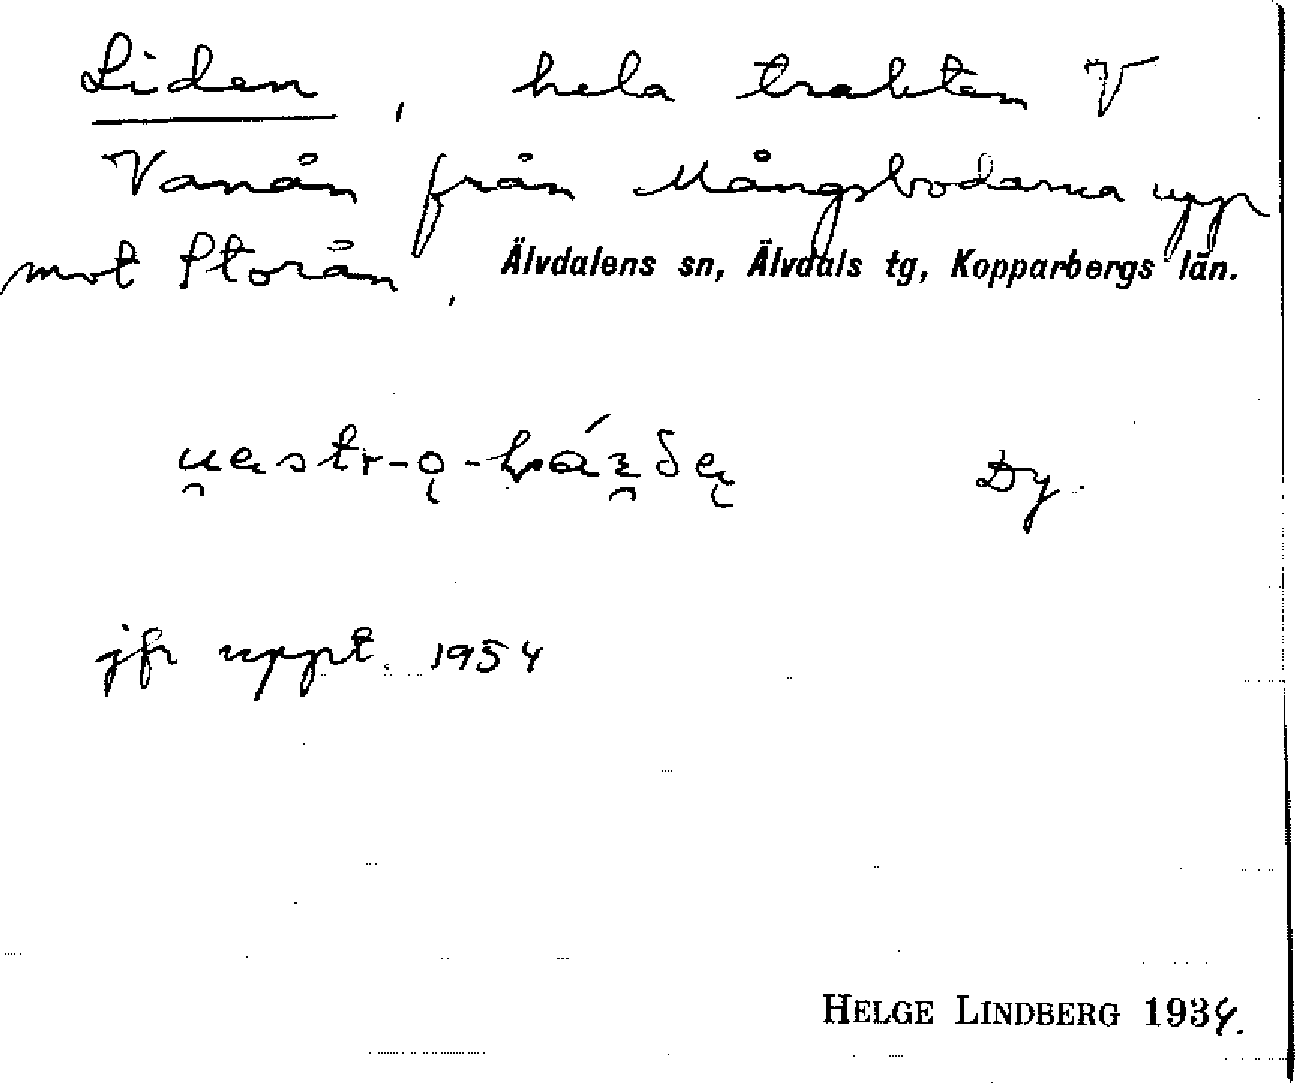 Liden, hela trakten V
Vanån från Mångsbodarna upp
mot Storån, Älvdalens sn, Älvdals tg, Kopparbergs län.
Dy.
jfr uppt. 1954
HELGE LINDBERG 1934.